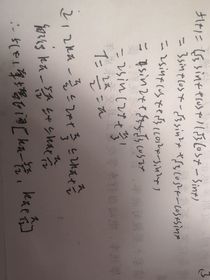 f(x) = (√3 sin x + cos x)(√3 cos x - sin x)
= 3 sin x cos x - √3 sin²x + √3 cos²x - cos x sin x
= 2 sin x cos x + √3 (cos²x - sin²x)
= sin 2x + √3 cos 2x
= 2 sin (2x + π/3)
T = 2π/2 = π
2kπ - π/2 ≤ 2x + π/3 ≤ 2kπ + π/2
kπ - 5π/12 ≤ x ≤ kπ + π/12
[kπ - 5π/12, kπ + π/12]